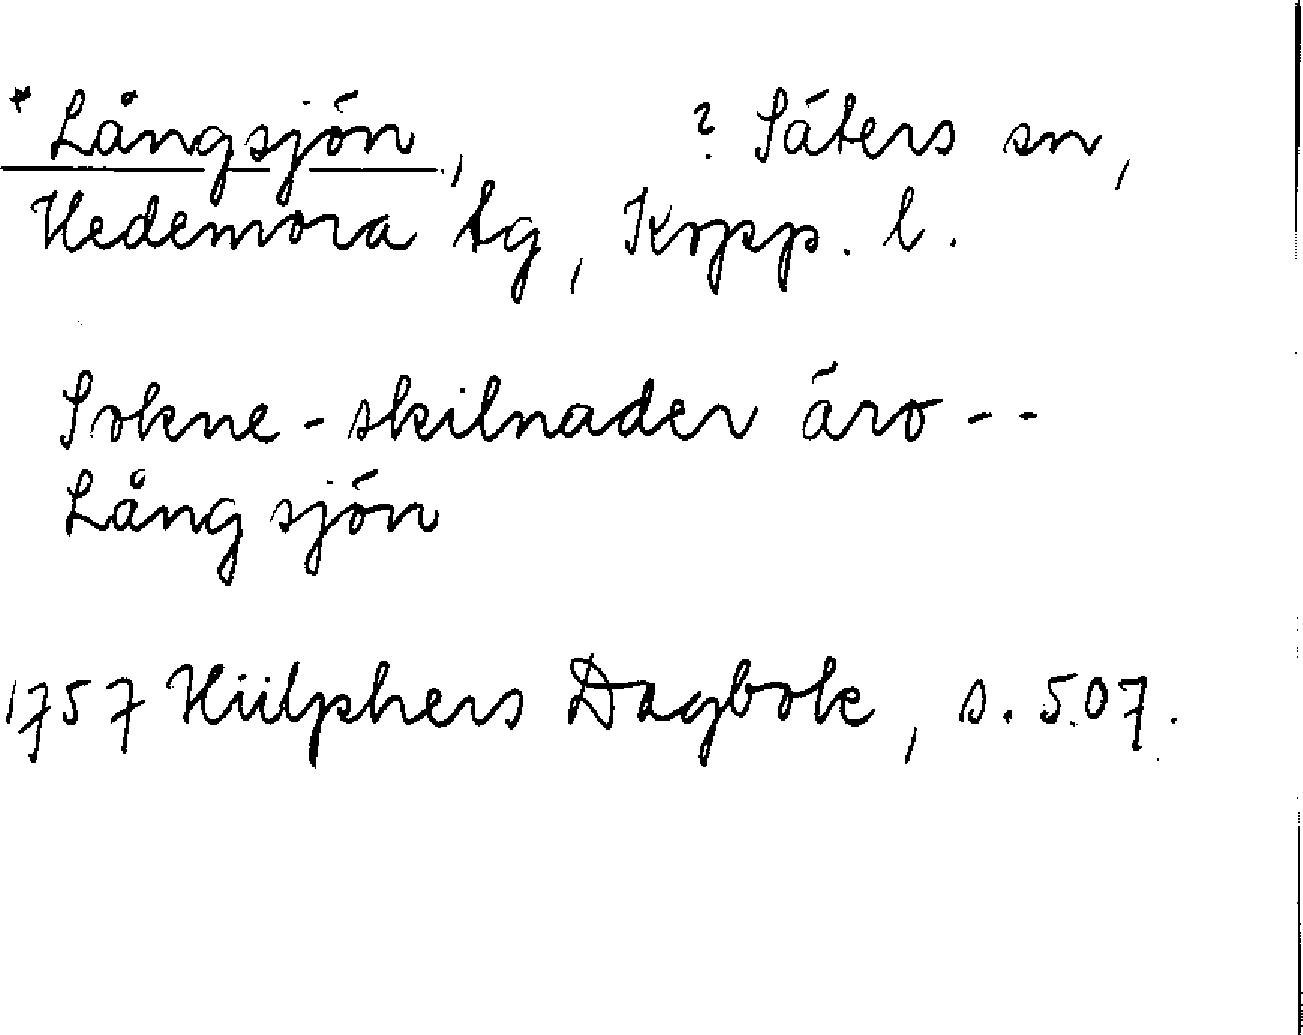 * Långsjön, ? Säters sn,
Hedemora tg, Kopp. l.
Sokne-skilnader äro --
Lång sjön
1757 Hülphers Dagbok, s. 507.